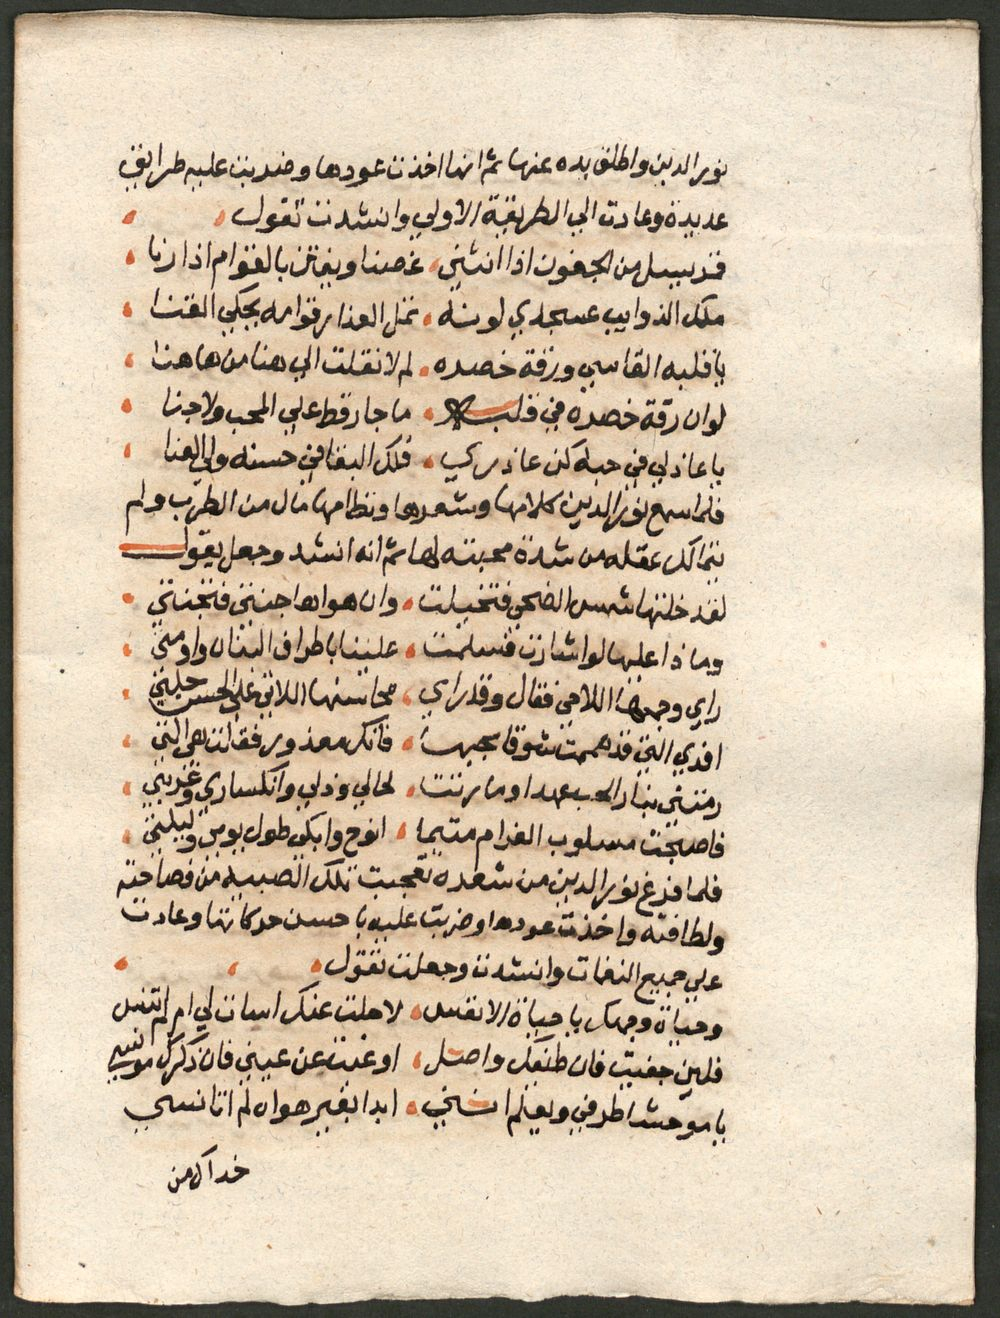 نور الدين واطلق يده عنها ثم انها اخذت عودها وضربت عليه طرايق
عديدة وعادت الي الطريقة الاولي وانشدت تقول
قد يسل من الجفون اذا انثني غصنا ويفتن بالقوام اذا رنا
ملك الذوايب عسجدي لونه نمل العذار قوامه يحكي القنا
يا قلبه القاسي ورقة خصره لم لا نقلت الي هنا من هاهنا
لو ان رقة خصره في قلبه ما جار قط علي المحب ولا جنا
يا عاذلي في حبه كن عاذري فلك البقا في حسنه ولي الفنا
فلما سمع نور الدين كلامها وشعرها ونظامها مال من الطرب ولم
يتمالك عقله من شدة محبته لها ثم انه انشد وجعل يقول
لقد خلتها شمس الضحي فتخيلت وان هواها جنتي فتجنتي
وماذا عليها لو اشارت فسلمت علينا باطراف البنان واومت
راي وجهها اللاحي فقال وقد راي محاسنها اللاتي علي الحسن جلتي
اهذي التي قد همت شوقا بحبها فانك معذور فقالت هي التي
رمتني بنار الحب عمدا وما رتت لحالي وذلي وانكساري وغربتي
فاصبحت مسلوب الغرام متيما انوح وابكي طول يومي وليلتي
فلما فرغ نور الدين من شعره تعجبت تلك الصبية من فصاحته
ولطافته واخذت عودها وضربت عليه باحسن حركاتها وعادت
علي جميع النغمات وانشدت وجعلت تقول
وحياة وجهك يا حياة الانفس لا حلت عنك اسات لي ام لم تنس
فلين جفيت فان طيفك واصل او غبت عن عيني فان ذكرك مونسي
يا موحشا طرفي ويعلم انني ابدا بغير هواه لم اتانسي
خداك من